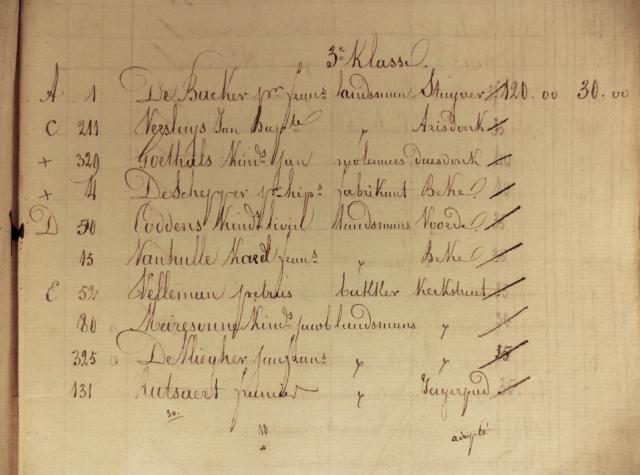 3e Klasse.
A 1 De Backer pr frans landsman Stuyver 120.00 30.00
C 211 Versluys Jan Bapte " Azisdonk
+ 329 Goethals Kinds Jan molenners daesdonk
+ 4 De Schepper fabrikant Beke
D 50 Coddens Kinds livin landsmans Voorde
15 Vanhulle Karel frans " Beke
E 52 Velleman petrus bakker Kerkstraat
80 Meiresonne Kinds jacob landsmans "
325 De Vliegher jan frans " " 35
131 Rutsaert francies "
10
adopté